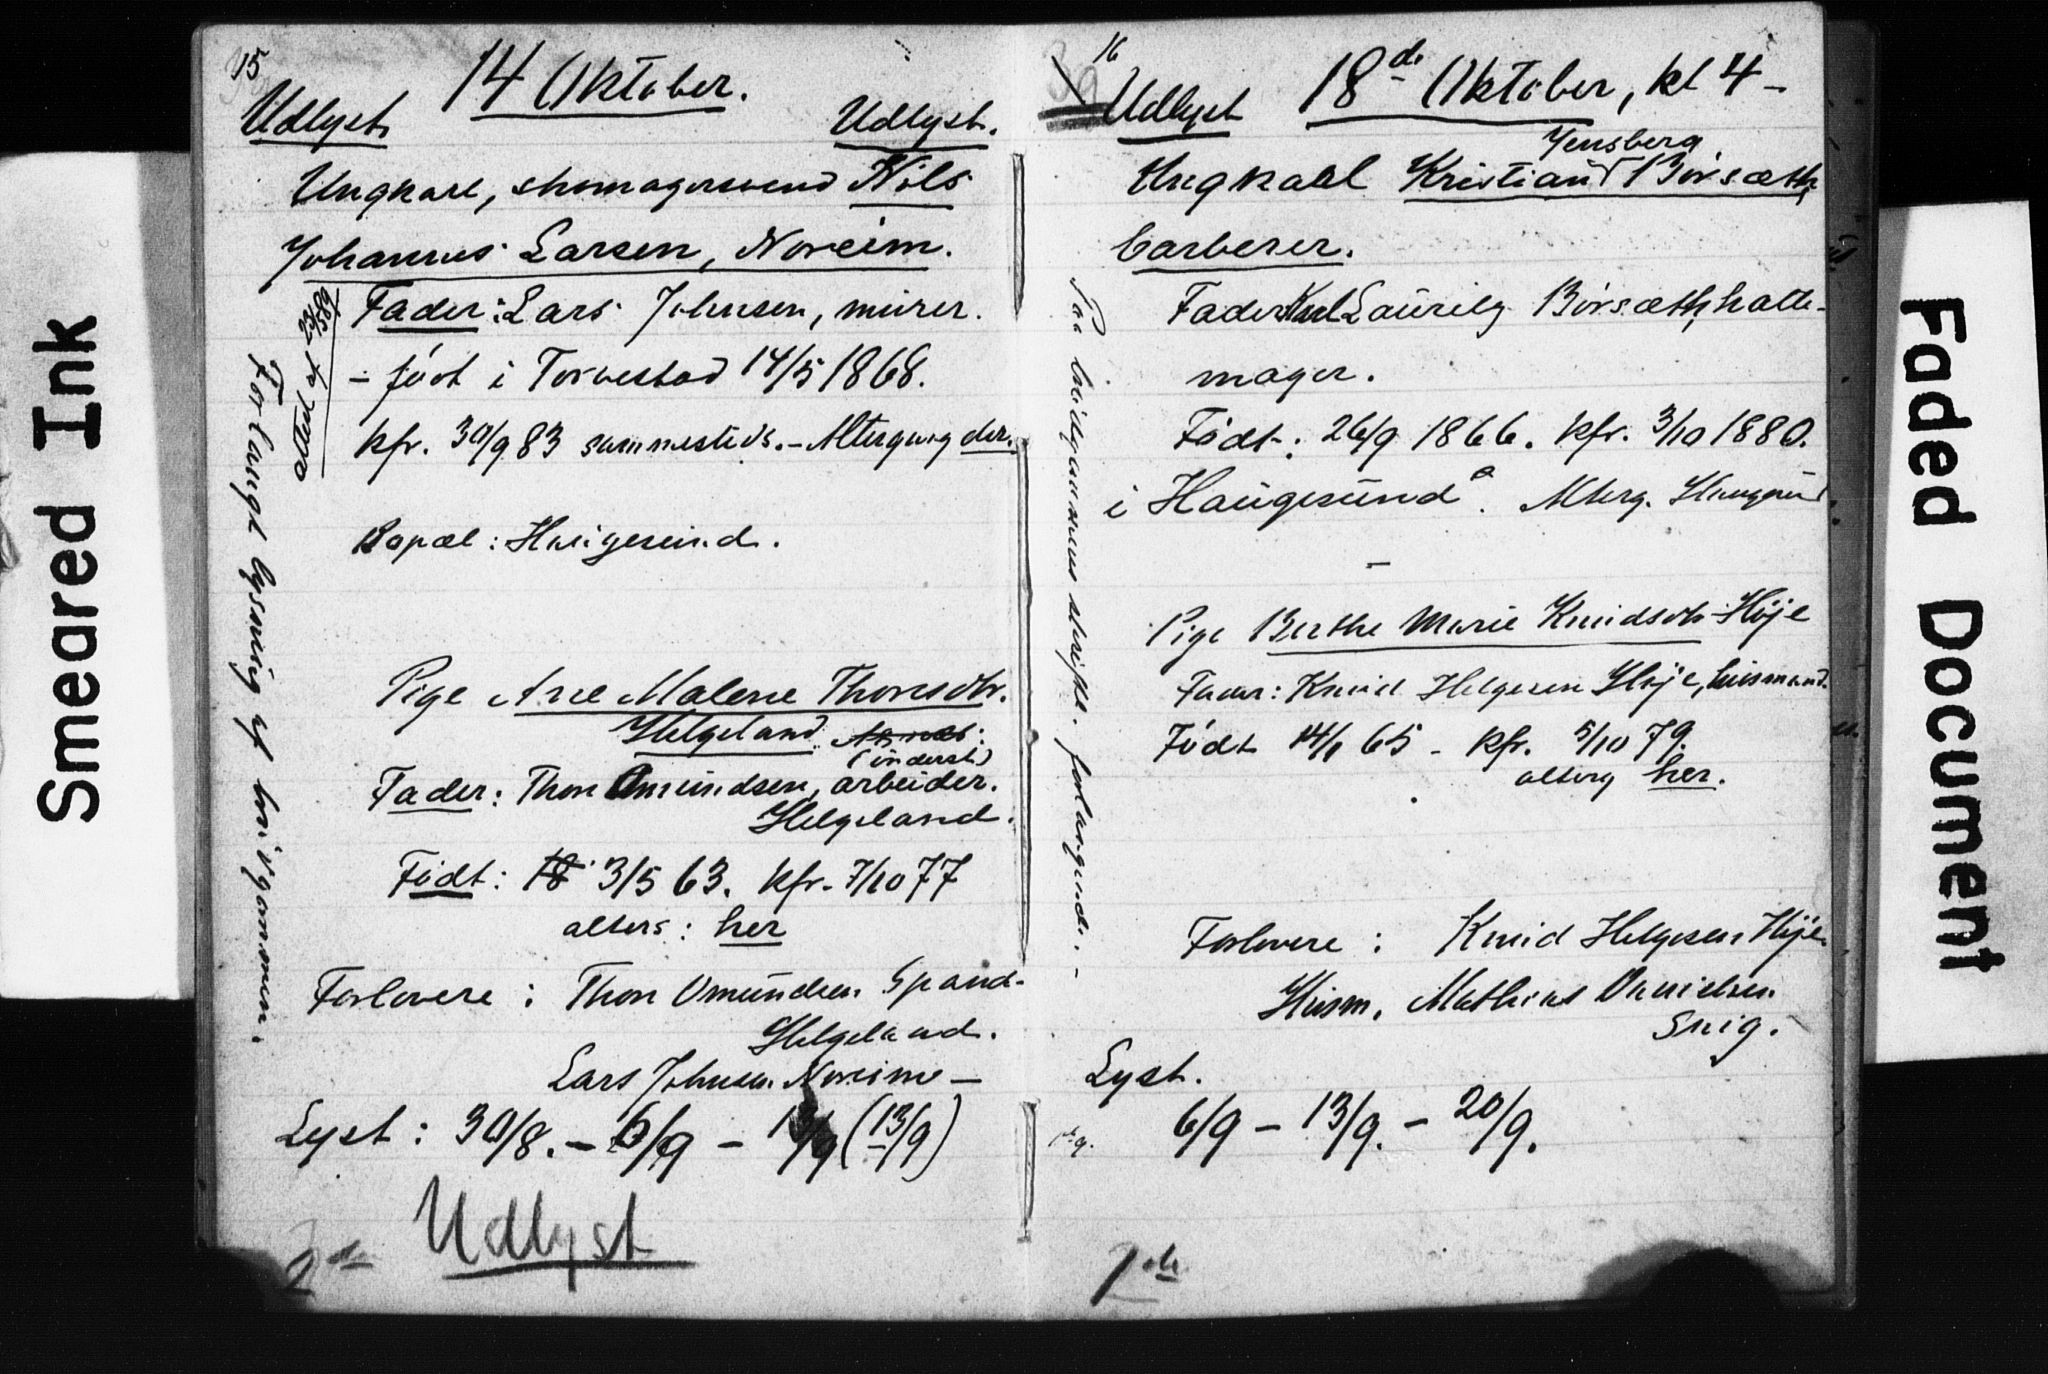 Smeared Ink
15
14 Oktober.
Udlyst.
Udlyst.
Ungkarl, skomagersvend Nils
Johannes Larsen, Noreim.
Fader: Lars Johnsen, murer.
- født i Torvestad 14/5 1868.
kfr. 30/9 83 sammesteds. - Altergang der.
Bopæl: Haugesund.
Pige Ane Malene Thoresdtr.
Helgeland
(inderst)
Fader: Thore Omundsen, arbeider.
Helgeland.
Født: 18 3/5 63. kfr. 7/10 77
alters: her
Forlovere: Thore Omundsen Spand-
Helgeland.
Lars Johnsen Noreim -
Lyst: 30/8. - 6/9 - 13/9 (13/9)
Udlyst
2de
attest af 23/5 89
Forlangt lysning af brudgommen.
16
39
18de Oktober, kl 4 -
Udlyst
Jensberg
Ungkarl Kristian Børsæth
barberer.
Fader Karl Lauritz Børsæth, hatte-
mager.
Født: 26/9 1866. kfr. 3/10 1880.
i Haugesund. Alterg. Haugesund
-
Pige Berthe Marie Knudsdtr Høje
Fader: Knud Helgesen Høje, husmand.
Født 14/1 65 - kfr. 5/10 79.
alterg her.
Forlovere: Knud Helgesen Høje
Husm. Mathias Danielsen
Snig.
Lyst.
6/9 - 13/9. - 20/9.
1de
Paa brudgommens skriftl. forlangende. -
Faded Document